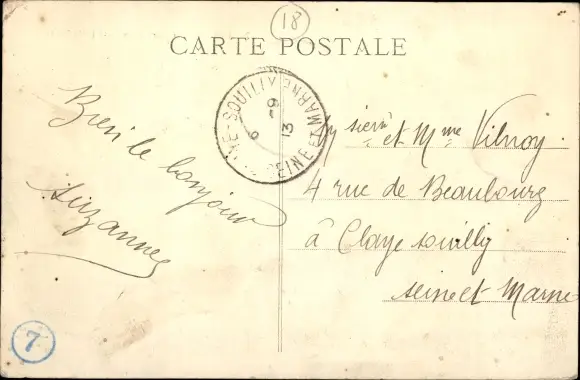 18
CARTE POSTALE
Bien le bonjour
Suzanne
SEINE ET MARNE
9
13
M sieur et Mme Vilnoy
4 rue de Beaubourg
à Claye souilly
seine et Marne
7